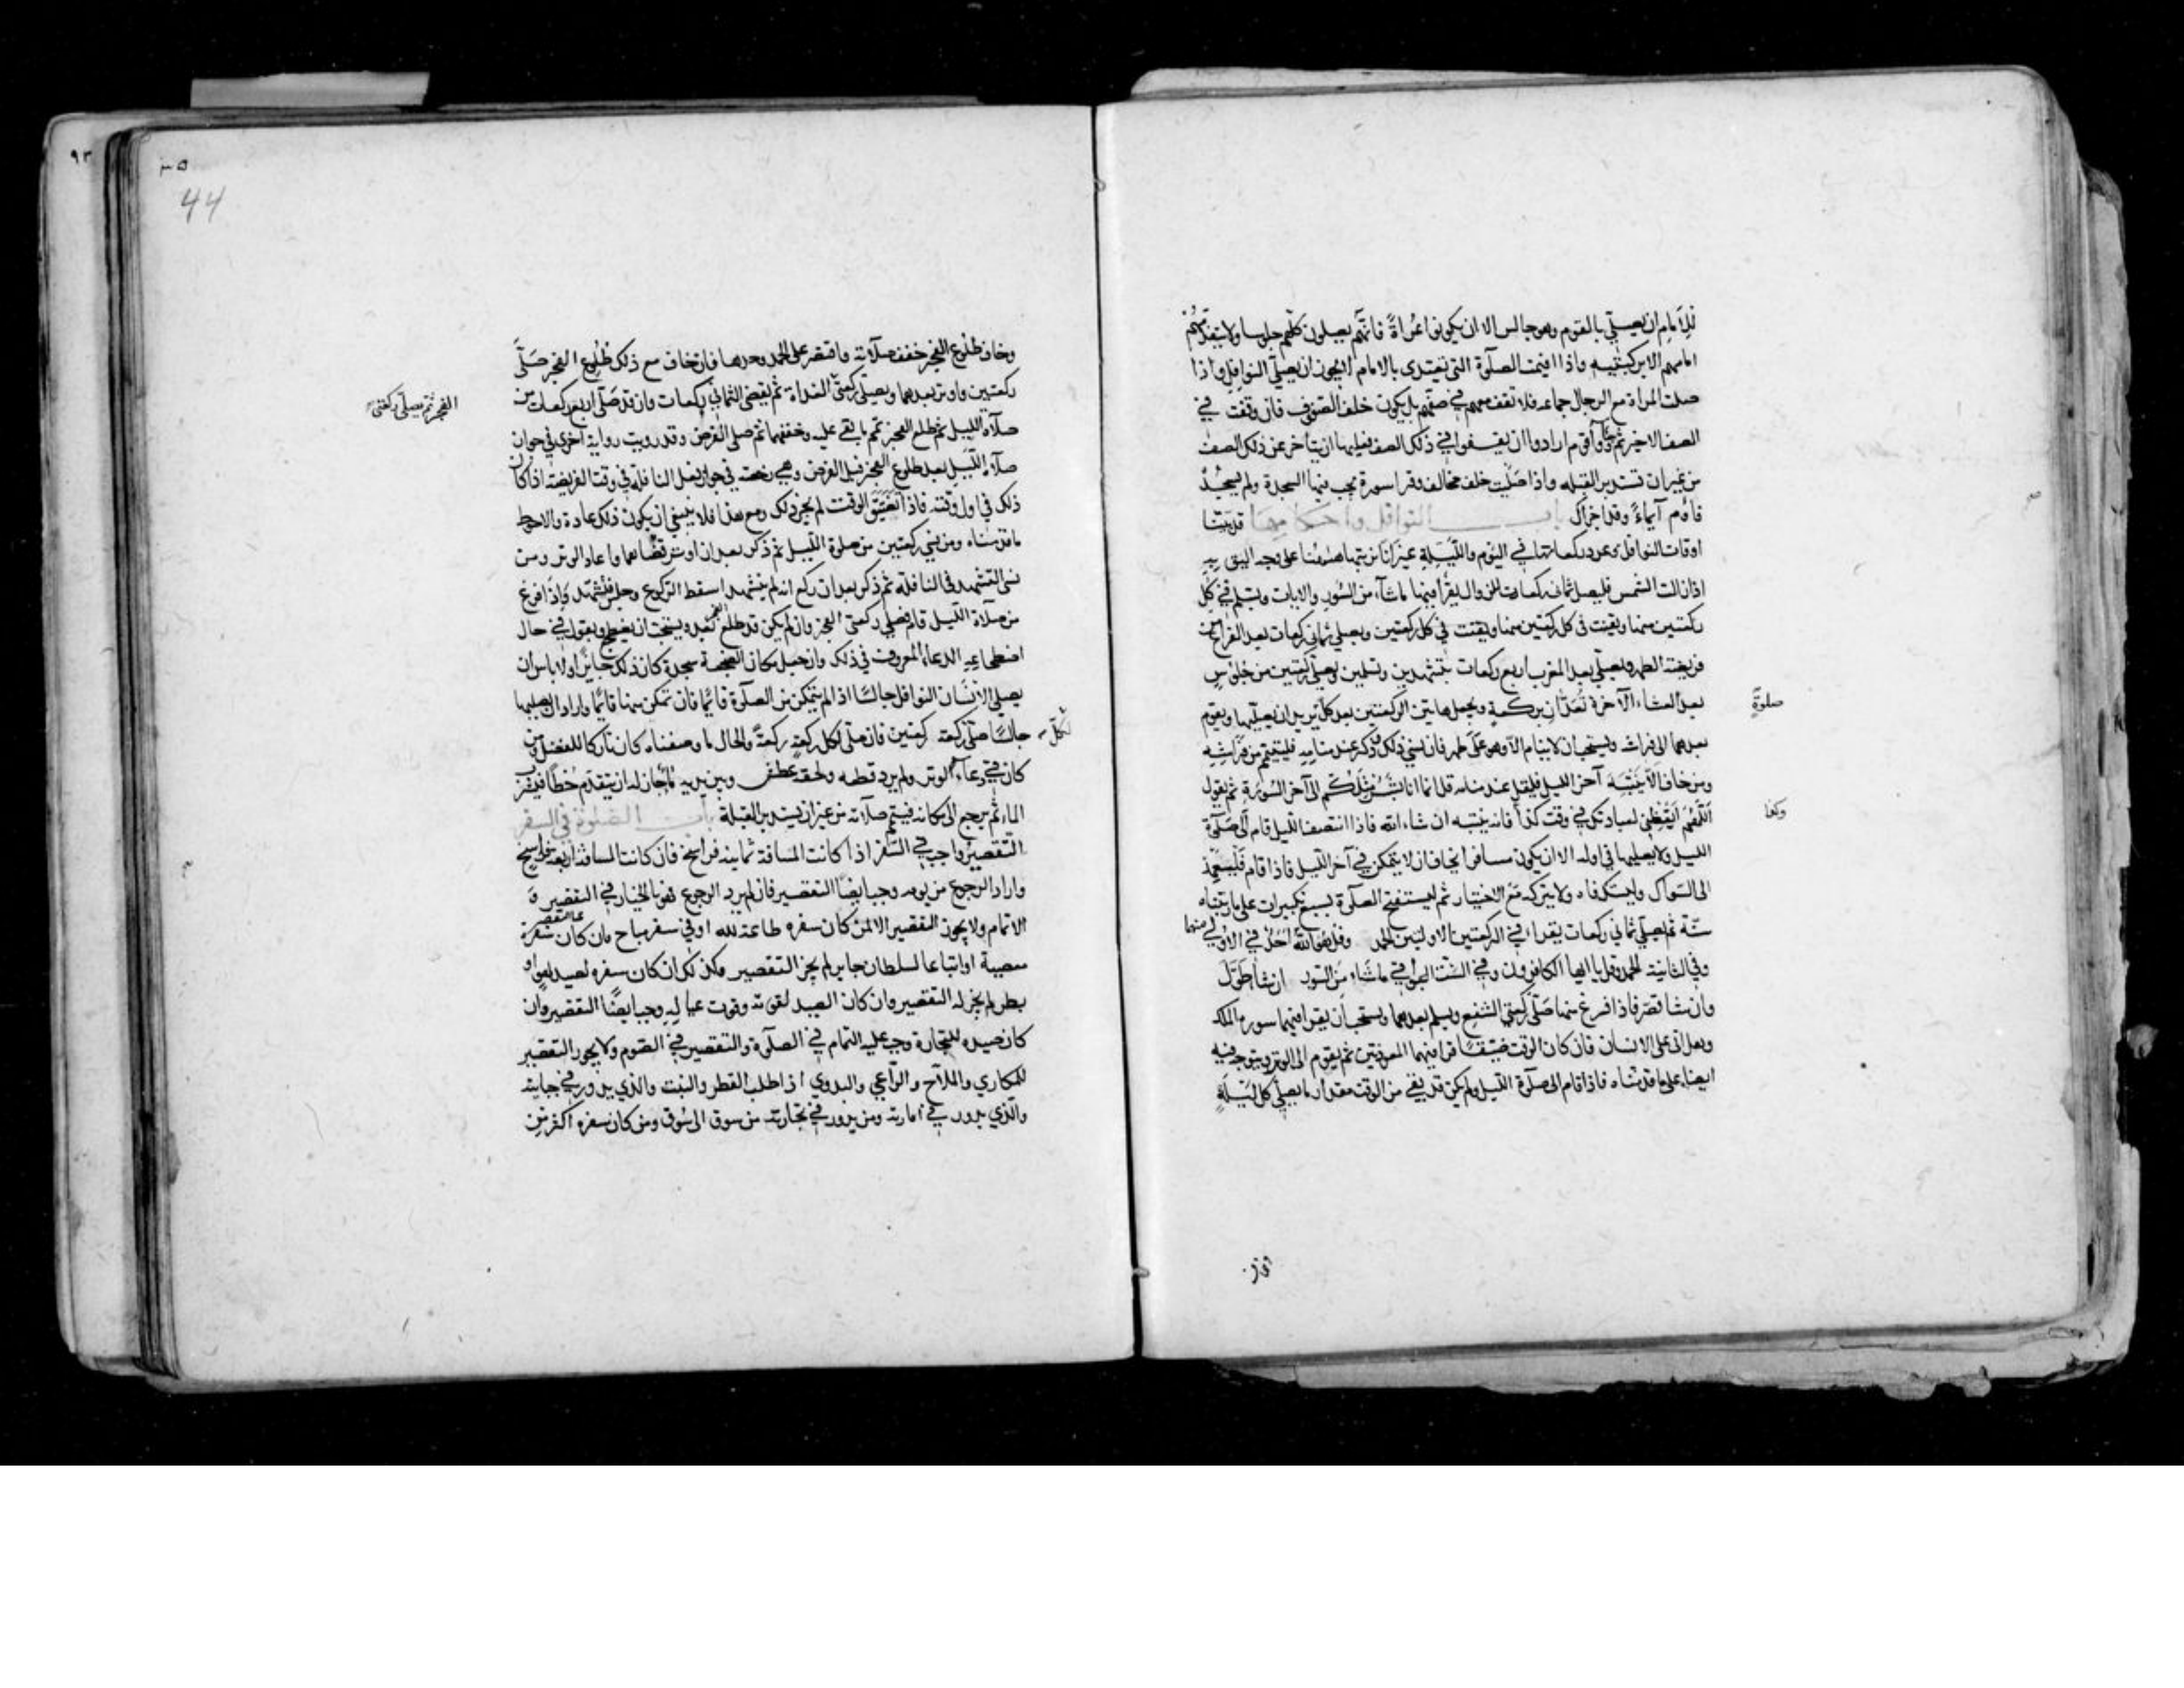 للامام ان يصلي بالقوم وهو جالس الا ان يكونوا عراة فانهم يصلون كلهم جلوسا ولا يتقدمهم
امامهم الا بركبتيه واذا اقيمت الصلوة التي يقتدى بالامام لا يجوز ان يصلي النوافل واذا
صلت المراة مع الرجال جماعه فلا تقف معهم في صفهم بل يكون خلف الصفوف فان وقفت في
الصف الاخير ثم جاؤا قوم ارادوا ان يقفوا في ذلك الصف فعليها ان يتاخر عن ذلك الصف
من غير ان تستدبر القبله واذا صليت خلف مخالف وقرا سورة يجب فيها السجدة ولم يسجد
فاوم ايماء وقد اجزاك باب النوافل واحكامها قد بينا
اوقات النوافل وعدد ركعاتها في اليوم والليلة غير انا نرتبها هاهنا على وجه اليق به
اذا زالت الشمس فليصل ثمان ركعات للزوال يقرا فيها ما شاء من السور والايات ويسلم في كل
ركعتين منها ويقنت في كل ركعتين ويصلي ثماني ركعات بعد الفراغ من
فريضة الظهر ويصلي بعد المغرب اربع ركعات بتشهدين وتسلمين ويصلي ركعتين من جلوس
بعد العشاء الآخرة تعدان بركعة ويجعل هاتين الركعتين بعد كل
صلوة
يريد ان يصليها ويقوم
بعدهما الى فراشه ويستحب ان لا ينام الا وهو على طهر فان نسي ذلك وذكر عند منامه فليتيمم من فراشه
ومن خاف الا ينتبه آخر الليل فليقل عند منامه قل انما انا بشر مثلكم الى آخر السورة ثم يقول
اللهم ايقظني لعبادتك في وقت كذا فانه ينتبه ان شاء الله فاذا انتصف الليل قام الى صلوة
وكذا
الليل ولا يصليها في اوله الا ان يكون مسافرا يخاف ان لا يتمكن في آخر الليل فاذا قام فليعمد
الى السواك وليستك فاه ولا يتركه مع الاختيار ثم ليستفتح الصلوة بسبع تكبيرات على ما رتبناه
ستة ثم ليصلي ثماني ركعات يقراء في الركعتين الاوليين الحمد وقل هو الله احد في الاولى منهما
وفي الثانية الحمد وقل يا ايها الكافرون وفي الست البواقي ما شاء من السور ان شا طول
وان شا قصر فاذا فرغ منها صلى ركعتي الشفع ويسلم بعدهما ويستحب ان يقرا فيهما سورة الملك
وهل اتى على الانسان فان كان الوقت ضيقا قرا فيهما المعوذتين ثم يقوم الى الوتر ويتوجه فيه
ايضا على ما قدمناه فاذا قام الى صلوة الليل ولم يكن قد بقي من الوقت مقدار ما يصلي كل ليلة
44
وخاف طلوع الفجر خفف صلاته واقتصر على الحمد وحدها فان خاف مع ذلك طلوع الفجر صلى
ركعتين واوتر بعدهما ويصلي ركعتي الغداة ثم يقضي الثماني ركعات وان قد صلى اربع ركعات من
الفجر ثم يصلي ركعتي
صلاة الليل ثم طلع الفجر تمم ما بقي عليه وخففها ثم صلى الفرض وقد رويت رواية اخرى في جواز
صلاة الليل بعد طلوع الفجر قبل الفرض وهي رخصة في جواز فعل النافلة في وقت الفريضة اذا كان
ذلك في اول وقته فاذا تضيق الوقت لم يجز ذلك ومع هذا فلا ينبغي ان يكون ذلك عادة والاحوط
ما قدمناه ومن نسي ركعتين من صلوة الليل ثم ذكر بعد ان اوتر قضاهما واعاد الوتر ومن
نسى التشهد في النافلة ثم ذكر بعد ان ركع انه لم يتشهد اسقط الركوع وجلس فتشهد واذا فرغ
من صلاة الليل قام فصلى ركعتي الفجر وان لم يكن قد طلع الفجر بعد ويستحب ان يضطجع ويقول في حال
اضطجاعه الدعاء المعروف في ذلك وان جعل مكان الضجعة سجدة كان ذلك جايزا ولا باس ان
يصلي الانسان النوافل جالسا اذا لم يتمكن من الصلوة قائما فان تمكن منها قائما واراد ان يصليها
جالسا صلى
لكل
ركعة ركعتين فان صلى لكل ركعة ركعة والحال ما وصفناه كان تاركا للفضل ومن
كان في دعاء الوتر ولم يرد قطعه ولحقه عطش وبين يديه ماء جاز له ان يتقدم خطا فيشرب
الماء ثم يرجع الى مكانه فيتم صلاته من غير ان يستدبر القبلة باب الصلوة في السفر
التقصير واجب في السفر اذا كانت المسافة ثمانية فراسخ فان كانت المسافة اربعة فراسخ
واراد الرجوع من يومه وجب ايضا التقصير فان لم يرد الرجوع فهو بالخيار في التقصير و
الاتمام ولا يجوز التقصير الا لمن كان سفره طاعة لله او في سفر مباح فان كان سفره
معصية او اتباعا لسلطان جاير لم يجز التقصير وكذلك ان كان سفره لصيد لهو او
بطر لم يجز له التقصير وان كان الصيد لقوته وقوت عياله وجب ايضا التقصير وان
كان صيده للتجارة وجب عليه التمام في الصلوة والتقصير في الصوم ولا يجوز التقصير
للمكاري والملاح والراعي والبدوي اذا طلب القطر والنبت والذي يدور في جبايته
والذي يدور في امارته ومن يدور في تجارته من سوق الى سوق ومن كان سفره اكثر من